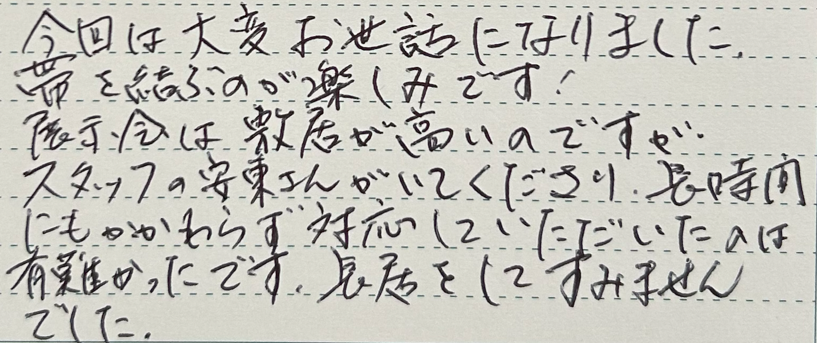 今回は大変お世話になりました。
帯を結ぶのが楽しみです！
展示会は敷居が高いのですが、
スタッフの安東さんがいてくださり、長時間
にもかかわらず対応していただいたのは
有難かったです。長居をしてすみません
でした。